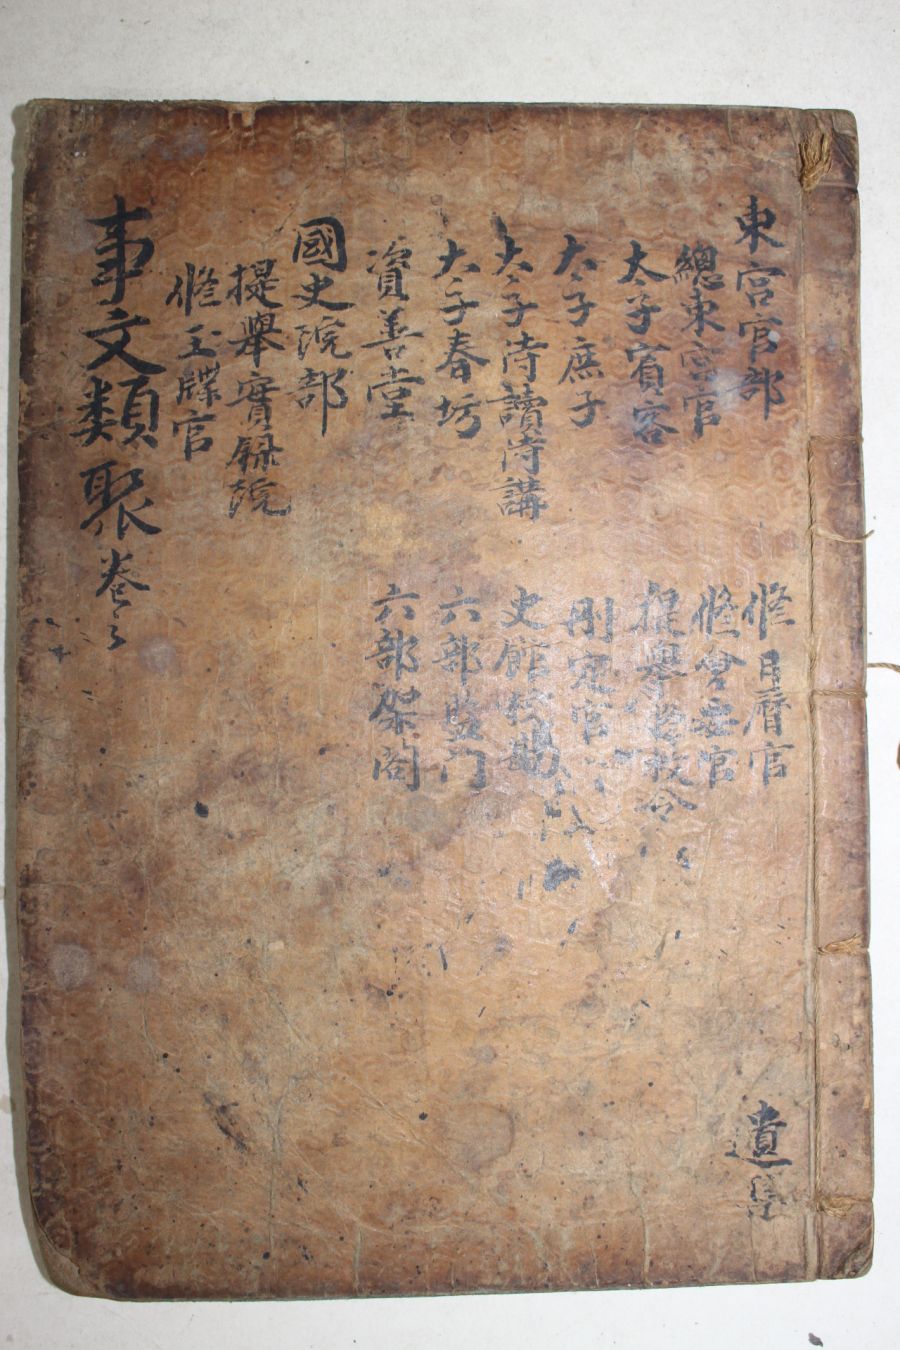 東宮官部
總東宮官
太子賓客
太子庶子
太子侍讀侍講
太子春坊
資善堂
國史院部
提擧實録院
修玉牒官
修日曆官
修會要官
提擧勅令
刪定官
史館校勘
六部監門
六部架閣
事文類聚 卷之
遺